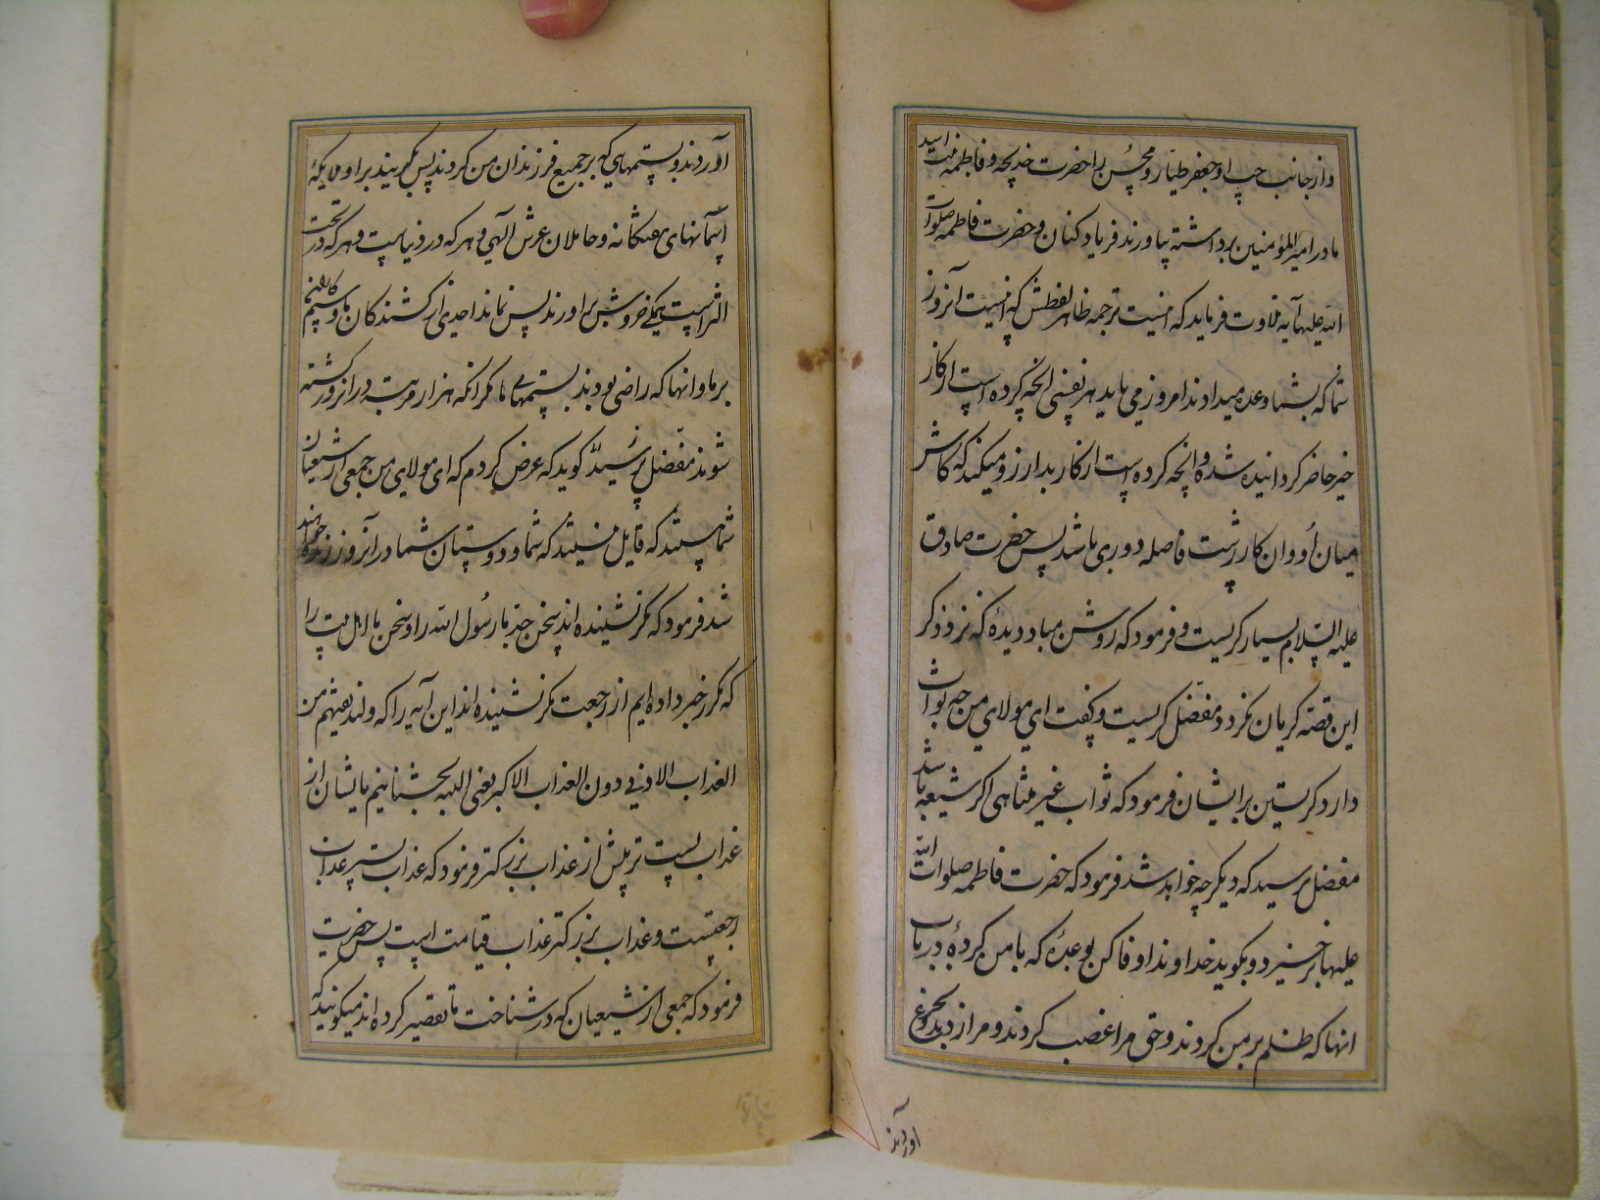 و از جانب چپ او جعفر طیار و محسن را حضرت خدیجه و فاطمه بنت اسد
مادر امیر المؤمنین برداشته بیاورند فریاد کنان و حضرت فاطمه صلوات
الله علیها آیه تلاوت فرماید که اینست ترجمه ظاهر لفظش که اینست آنروز
شما که بشما وعده میدادند امروز می یابد هر نفسی انچه کرده است از کار
خیر حاضر کردانیده شده و انچه کرده است از کار بد ارزو میکند که کاش
میان او و ان کار زشت فاصله دوری باشد پس حضرت صادق
علیه السلام بسیار کریست و فرمود که روشن مباد دیدۀ که نزد ذکر
این قصه کریان نکردد مفضل کریست و کفت ای مولای من چه ثواب
دارد کریستن بر ایشان فرمود که ثواب غیر متناهی اکر شیعه باشد
مفضل پرسید که دیکر چه خواهد شد فرمود که حضرت فاطمه صلوات الله
علیها بر خیزد و بکوید خداوندا وفا کن بوعدۀ که با من کردۀ در باب
انها که ظلم بر من کردند و حق مرا غصب کردند و مرا زدند و بجزع
اوردند
اوردند و بستمهایی که بر جمیع فرزندان من کردند پس بکریند بر او ملایکۀ
اسمانهای هفتکانه و حاملان عرش الهی و هر که در دنیاست و هر که در تحت
الثراست همکی خروش بر اورند پس نماند احدی از کشندکان ما و ستم کنندکان
بر ما و انها که راضی بودند بستمهای ما مکر انکه هزار مرتبه در انروز کشته
شوند مفضل پرسید کوید که عرض کردم که ای مولای من جمعی از شیعیان
شما هستند که قایل نیستند که شما و دوستان شما در آنروز زنده خواهند
شد فرمود که مکر نشینده اند سخن جد ما رسول الله را و سخن ما اهل بیت را
که مکرر خبر داده ایم از رجعت مکر نشینده اند این آیه را که ولنذیقنهم من
العذاب الادنی دون العذاب الاکبر یعنی البته بچشانیم ما یشان از
عذاب پست تر پیش از عذاب بزرکتر فرمود که عذاب پست تر عذاب
رجعتست و عذاب بزرکتر عذاب قیامت است پس حضرت
فرمود که جمعی از شیعیان که در شناخت ما تقصیر کرده اند میکویند که